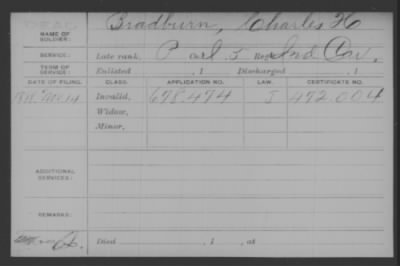 DEAD
NAME OF SOLDIER: Bradburn, Charles H
SERVICE: Late rank, P Co. I, 5 Reg. Ind Cav.
TERM OF SERVICE: Enlisted , 1 Discharged , 1
DATE OF FILING. CLASS. APPLICATION NO. LAW. CERTIFICATE NO.
Invalid, 678.474 J 472.004
Widow,
Minor,
ADDITIONAL SERVICES:
REMARKS:
Died , 1 , at